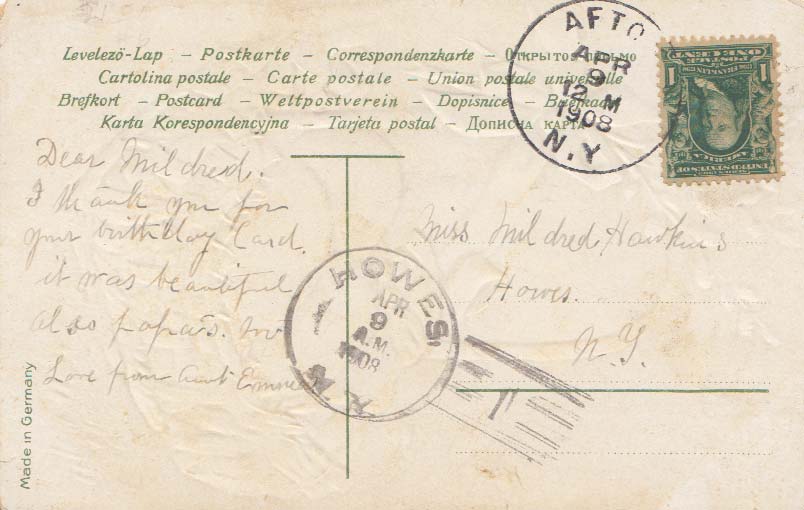 Levelező-Lap – Postkarte – Correspondenzkarte – Открытое письмо
Cartolina postale – Carte postale – Union postale universelle
Brefkort – Postcard – Weltpostverein – Dopisnice – Briefkaart
Karta Korespondencyjna – Tarjeta postal – Дописна карта
AFTO
APR
9
12 M
1908
N.Y
POSTAGE
ONE CENT
1 1
UNITED STATES OF AMERICA
Dear Mildred.
I thank you for
your birthday Card.
it was beautiful
also papa's.
Love from Aunt
Miss Mildred Hawkins
Howes.
N.Y.
HOWES,
APR
9
A.M.
1908
N.Y.
1
Made in Germany